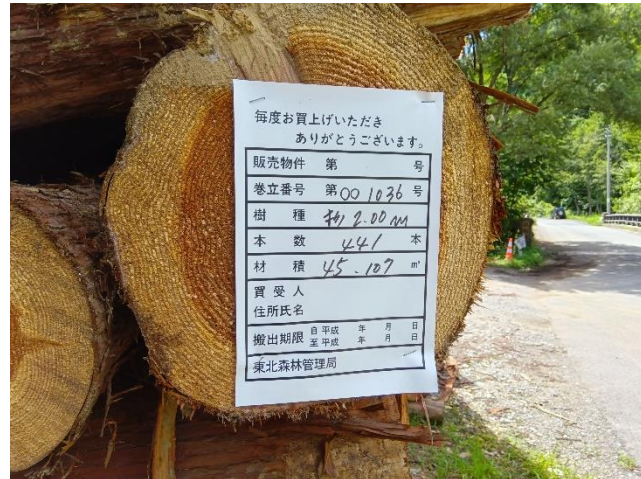 毎度お買上げいただき
ありがとうございます。
販売物件 第 号
巻立番号 第001036号
樹種 杉 2.00m
本数 441 本
材積 45.107 m³
買受人
住所氏名
搬出期限 自 平成 年 月 日
至 平成 年 月 日
東北森林管理局